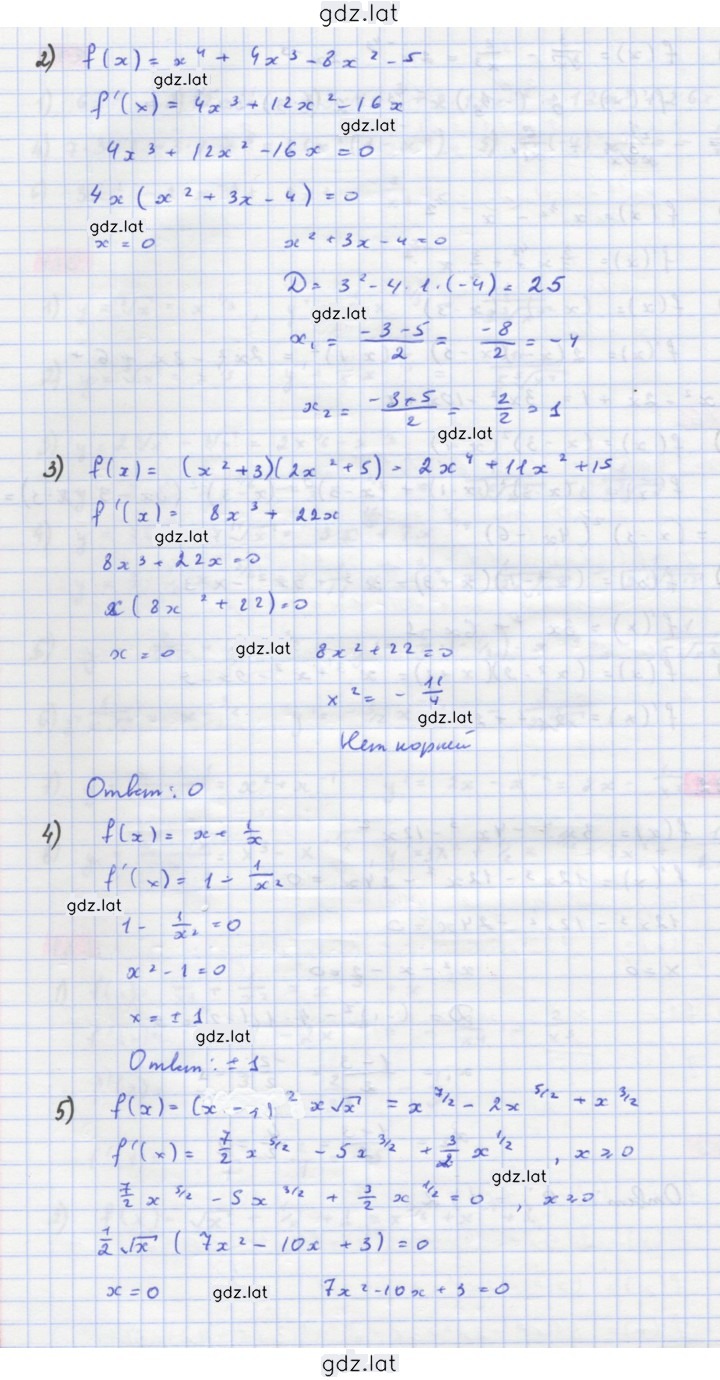 gdz.lat
2) f(x) = x⁴ + 4x³ - 8x² - 5
gdz.lat
f'(x) = 4x³ + 12x² - 16x
gdz.lat
4x³ + 12x² - 16x = 0
4x(x² + 3x - 4) = 0
gdz.lat
x = 0 x² + 3x - 4 = 0
D = 3² - 4·1·(-4) = 25
gdz.lat
x₁ = (-3-5)/2 = -8/2 = -4
x₂ = (-3+5)/2 = 2/2 = 1
gdz.lat
3) f(x) = (x²+3)(2x²+5) = 2x⁴ + 11x² + 15
f'(x) = 8x³ + 22x
gdz.lat
8x³ + 22x = 0
x(8x² + 22) = 0
x = 0 gdz.lat 8x² + 22 = 0
x² = - 11/4
gdz.lat
Нет корней
Ответ: 0
4) f(x) = x + 1/x
f'(x) = 1 - 1/x²
gdz.lat
1 - 1/x² = 0
x² - 1 = 0
x = ± 1
gdz.lat
Ответ: ± 1
5) f(x) = (x - 1)² x√x = x^(7/2) - 2x^(5/2) + x^(3/2)
f'(x) = 7/2 x^(5/2) - 5x^(3/2) + 3/2 x^(1/2), x ≥ 0
gdz.lat
7/2 x^(5/2) - 5x^(3/2) + 3/2 x^(1/2) = 0, x ≥ 0
1/2 √x (7x² - 10x + 3) = 0
x = 0 gdz.lat 7x² - 10x + 3 = 0
gdz.lat